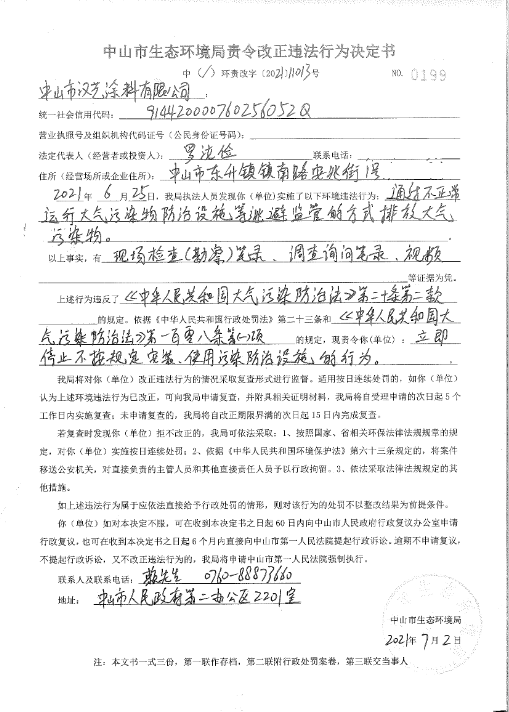 中山市生态环境局责令改正违法行为决定书
中(/)环责改字〔2021〕11013号 NO. 0199
中山市汉艺涂料有限公司:
统一社会信用代码: 91442000760256052Q
营业执照号及组织机构代码证号(公民身份证号码):
法定代表人(经营者或投资人): 罗 俭 联系电话:
住所(经营场所或企业住所): 中山市东升镇镇南路 兆街1号
2021年6月25日,我局执法人员发现你(单位)实施了以下环境违法行为: 通过不正常
运行大气污染物防治设施等逃避监管的方式排放大气
污染物。
以上事实,有 现场检查(勘察)笔录、调查询问笔录、视频
等证据为凭。
上述行为违反了《中华人民共和国大气污染防治法》第二十条第二款
的规定。依据《中华人民共和国行政处罚法》第二十三条和《中华人民共和国大
气污染防治法》第一百零八条第(六)项 的规定,现责令你(单位): 立即
停止不按规定安装、使用污染防治设施的行为。
我局将对你(单位)改正违法行为的情况采取复查形式进行监督。适用按日连续处罚的,如你(单位)
认为上述环境违法行为已改正,可向我局申请复查,并附具相关证明材料,我局将自受理申请的次日起5个
工作日内实施复查;未申请复查的,我局将自改正期限届满的次日起15日内完成复查。
若复查时发现你(单位)拒不改正的,我局可依法采取:1、按照国家、省相关环保法律法规规章的规
定,对你(单位)实施按日连续处罚;2、依据《中华人民共和国环境保护法》第六十三条规定的,将案件
移送公安机关,对直接负责的主管人员和其他直接责任人员予以行政拘留。3、依法采取法律法规规定的其
他措施。
如上述违法行为属于应依法直接给予行政处罚的情形,则对该行为的处罚不以整改结果为前提条件。
你(单位)如对本决定不服,可在收到本决定书之日起60日内向中山市人民政府行政复议办公室申请
行政复议,也可在收到本决定书之日起6个月内直接向中山市第一人民法院提起行政诉讼。逾期不申请复议,
不提起行政诉讼,又不改正违法行为的,我局将申请中山市第一人民法院强制执行。
联系人及联系电话: 赖先生 0760-88873660
地址: 中山市人民政府第二办公区2201室
中山市生态环境局
2021年7月2日
注:本文书一式三份,第一联作存档,第二联附行政处罚案卷,第三联交当事人